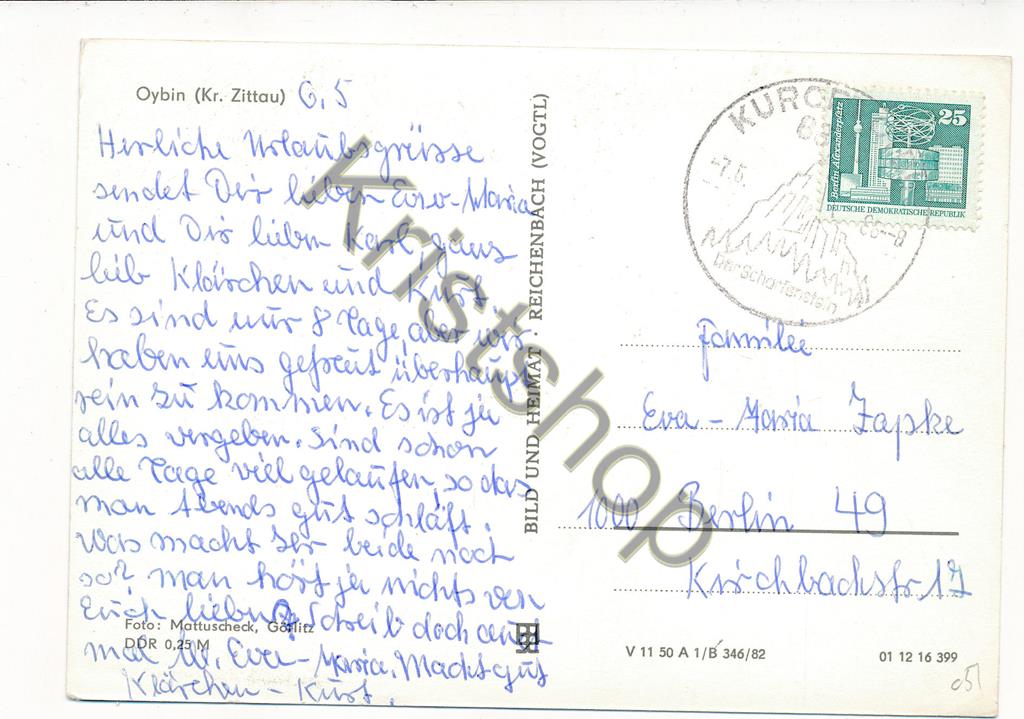 Oybin (Kr. Zittau) 6.5
Herliche Urlaubsgrüsse
sendet Dir lieber Eva-Maria
und Dir lieber Karl, ganz
lieb Klärchen und Kurt.
Es sind nur 8 Tage, aber wir
haben uns gefreut überhaupt
rein zu kommen. Es ist ja
alles vergeben. Sind schon
alle Tage viel gelaufen, so das
man Abends gut schläft.
Was macht Ihr beide noch
so? man hört ja nichts von
Euch lieben. Schreib doch auch
mal lb. Eva-Maria. Machts gut
Klärchen - Kurt.
Foto: Mattuscheck, Görlitz
DDR 0,25 M
BILD UND HEIMAT · REICHENBACH (VOGTL)
KURO
-7.5.
86--8
Der Scharfenstein
25
Berlin Alexanderplatz
DEUTSCHE DEMOKRATISCHE REPUBLIK
Familie
Eva-Maria Zapke
1000 Berlin 49
Kirchbachstr. 17
V 11 50 A 1/B 346/82
01 12 16 399
Kristshop